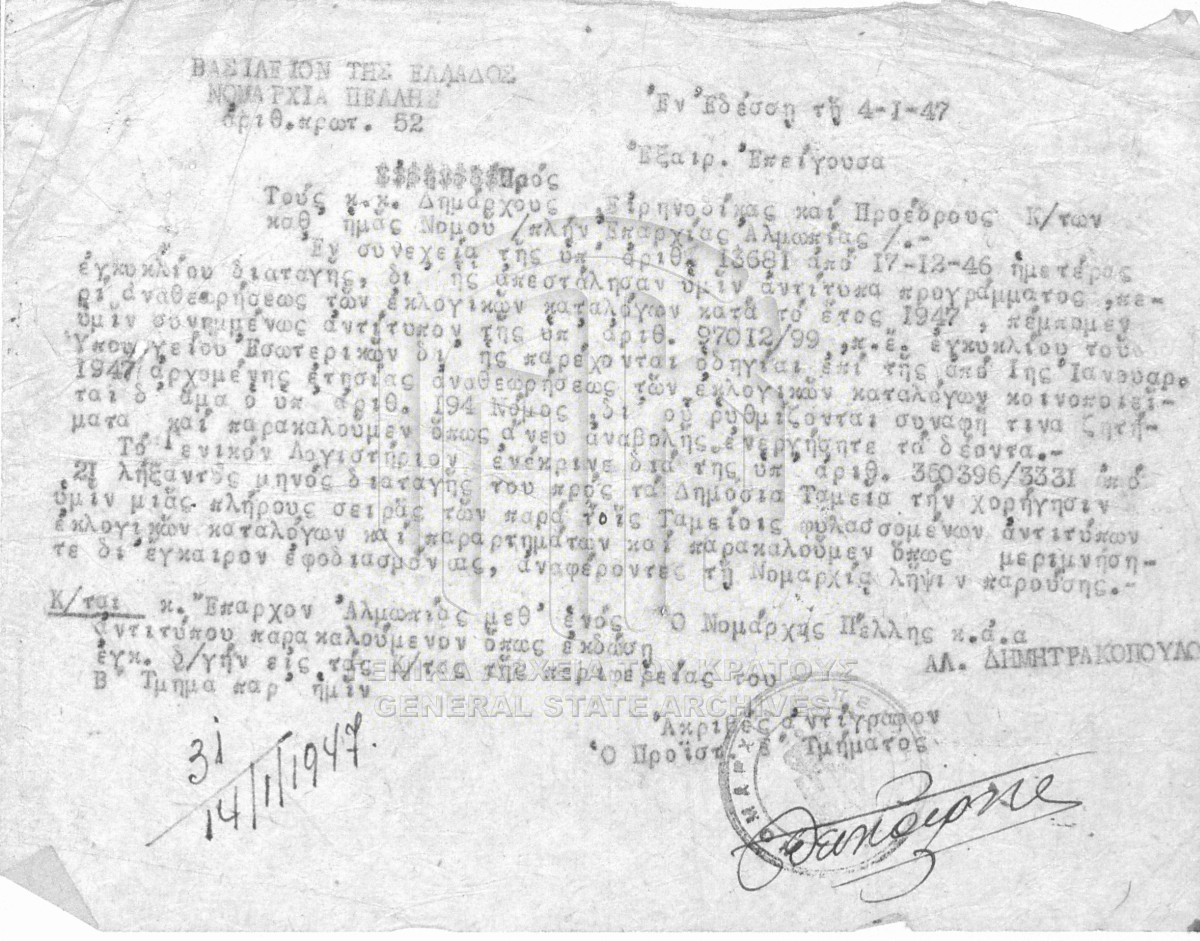 ΒΑΣΙΛΕΙΟΝ ΤΗΣ ΕΛΛΑΔΟΣ
ΝΟΜΑΡΧΙΑ ΠΕΛΛΗΣ
ἀριθ.πρωτ. 52
Ἐν Ἐδέσσῃ τῇ 4-Ι-47
Ἐξαιρ. Ἐπείγουσα
Πρός
Τούς κ.κ. Δημάρχους ,Εἰρηνοδίκας καί Προέδρους Κ/των
καθ' ἡμᾶς Νομοῦ /πλήν Ἐπαρχίας Ἀλμωπίας /.-
Ἐν συνεχείᾳ τῆς ὑπ' ἀριθ. Ι3681 ἀπό Ι7-Ι2-46 ἡμετέρας
ἐγκυκλίου διαταγῆς, δι' ἧς ἀπεστάλησαν ὑμῖν ἀντίτυπα προγράμματος ,πε-
ρί ἀναθεωρήσεως τῶν ἐκλογικῶν καταλόγων κατά τό ἔτος Ι947 , πέμπομεν
ὑμῖν συνημμένως ἀντίτυπον τῆς ὑπ' ἀριθ. 970Ι2/99 ,π.ἔ. ἐγκυκλίου τοῦ
Ὑπουργείου Ἐσωτερικῶν δι' ἧς παρέχονται ὁδηγίαι ἐπί τῆς ἀπό Ιης Ἰανουαρ.
Ι947 ἀρχομένης ἐτησίας ἀναθεωρήσεως τῶν ἐκλογικῶν καταλόγων κοινοποιεῖ-
ται δ' ἅμα ὁ ὑπ' ἀριθ. Ι94 Νόμος ,δι' οὗ ρυθμίζονται συναφῆ τινα ζητή-
ματα καί παρακαλοῦμεν ὅπως ἄνευ ἀναβολῆς ἐνεργήσητε τά δέοντα.-
Τό Γενικόν Λογιστήριον ἐνέκρινε διά τῆς ὑπ' ἀριθ. 350396/333Ι ἀπό
2Ι λήξαντος μηνός διαταγῆς του πρός τά Δημόσια Ταμεῖα τήν χορήγησιν
ὑμῖν μιᾶς πλήρους σειρᾶς τῶν παρά τοῖς Ταμείοις φυλασσομένων ἀντιτύπων
ἐκλογικῶν καταλόγων καί παραρτημάτων καί παρακαλοῦμεν ὅπως μεριμνήση-
τε δι' ἔγκαιρον ἐφοδιασμόν σας, ἀναφέροντες τῇ Νομαρχίᾳ λῆψιν παρούσης.-
Κ/ται κ. Ἔπαρχον Ἀλμωπίας μεθ' ἑνός
ἀντιτύπου παρακαλούμενον ὅπως ἐκδώσῃ
ἐγκ. δ/γήν εἰς τάς Κ/τας τῆς περιφερείας του
Β' Τμῆμα παρ' ἡμῖν
Ὁ Νομάρχης Πέλλης κ.ἀ.α
ΑΛ. ΔΗΜΗΤΡΑΚΟΠΟΥΛΟ
ΓΕΝΙΚΑ ΑΡΧΕΙΑ ΤΟΥ ΚΡΑΤΟΥΣ
GENERAL STATE ARCHIVES
Ἀκριβές ἀντίγραφον
Ὁ Προϊστ. Τμήματος
31
14/1/1947.